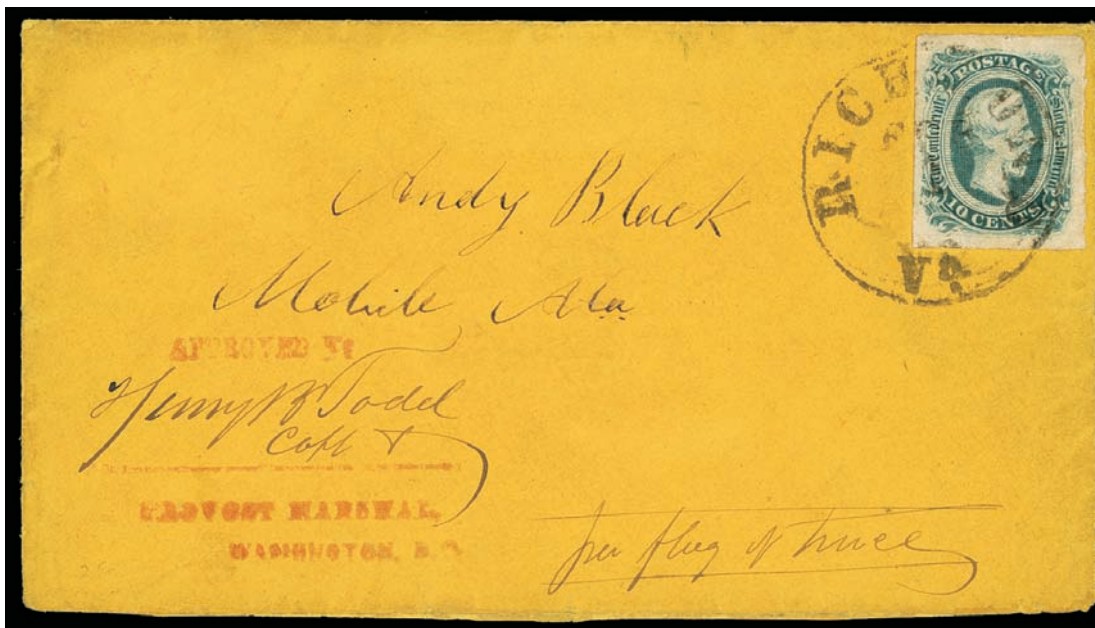 RICH
VA
POSTAGE
The Confederate States of America
10 CENTS
Andy Black
Mobile Ala
APPROVED
Henry B Todd
Capt &
PROVOST MARSHAL,
WASHINGTON, D.C.
per flag of truce